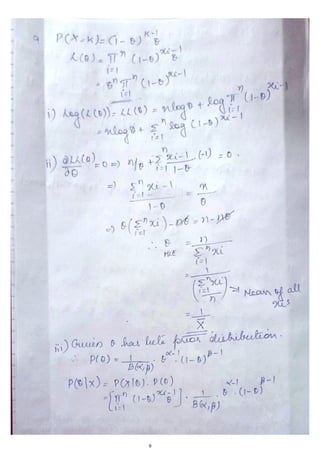 P(X=K)= (1-θ)^{K-1} θ
L(θ) = ∏_{i=1}^{n} (1-θ)^{xi-1} θ
= θ^n ∏_{i=1}^{n} (1-θ)^{xi-1}
i) log(L(θ)) = LL(θ) = nlogθ + log ∏_{i=1}^{n} (1-θ)^{xi-1}
= nlogθ + Σ_{i=1}^{n} log (1-θ)^{xi-1}
ii) ∂LL(θ)/∂θ = 0 => n/θ + Σ_{i=1}^{n} xi-1/1-θ (-1) = 0.
=> Σ_{i=1}^{n} xi-1 / 1-θ = n/θ
=> θ(Σ_{i=1}^{n} xi) - nθ = n - nθ
∴ θ = n / Σ_{i=1}^{n} xi
= 1 / (Σ_{i=1}^{n} xi / n) → Mean of all xi's
= 1/X̄
iii) Given θ has beta prior distribution.
∴ P(θ) = 1/B(α,β) . θ^{α-1} . (1-θ)^{β-1}
P(θ|X) = P(X|θ). P(θ)
= [∏_{i=1}^{n} (1-θ)^{xi-1} θ] . 1/B(α,β) . θ^{α-1} . (1-θ)^{β-1}
9